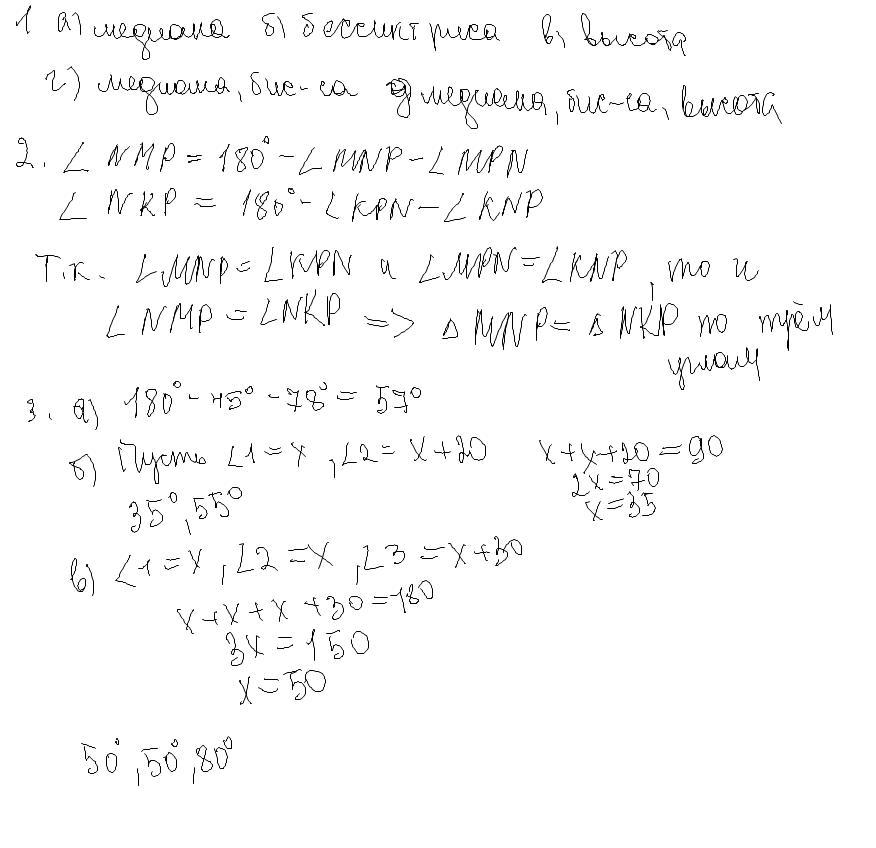 1 а) медиана б) бессиктриса в) высота
г) медиана, бис-са д) медиана, бис-са, высота
2. ∠ NMP = 180° - ∠ MNP - ∠ MPN
∠ NKP = 180° - ∠ KPN - ∠ KNP
Т.к. ∠MNP = ∠KPN и ∠MPN = ∠KNP, то и
∠NMP = ∠NKP => ∆ MNP = ∆ NKP по трём
углам
3. а) 180° - 45° - 78° = 57°
б) Пусть ∠1 = x, ∠2 = x + 20 x + x + 20 = 90
2x = 70
35°, 55° x = 35
в) ∠1 = x, ∠2 = x, ∠3 = x + 30
x + x + x + 30 = 180
3x = 150
x = 50
50°, 50°, 80°